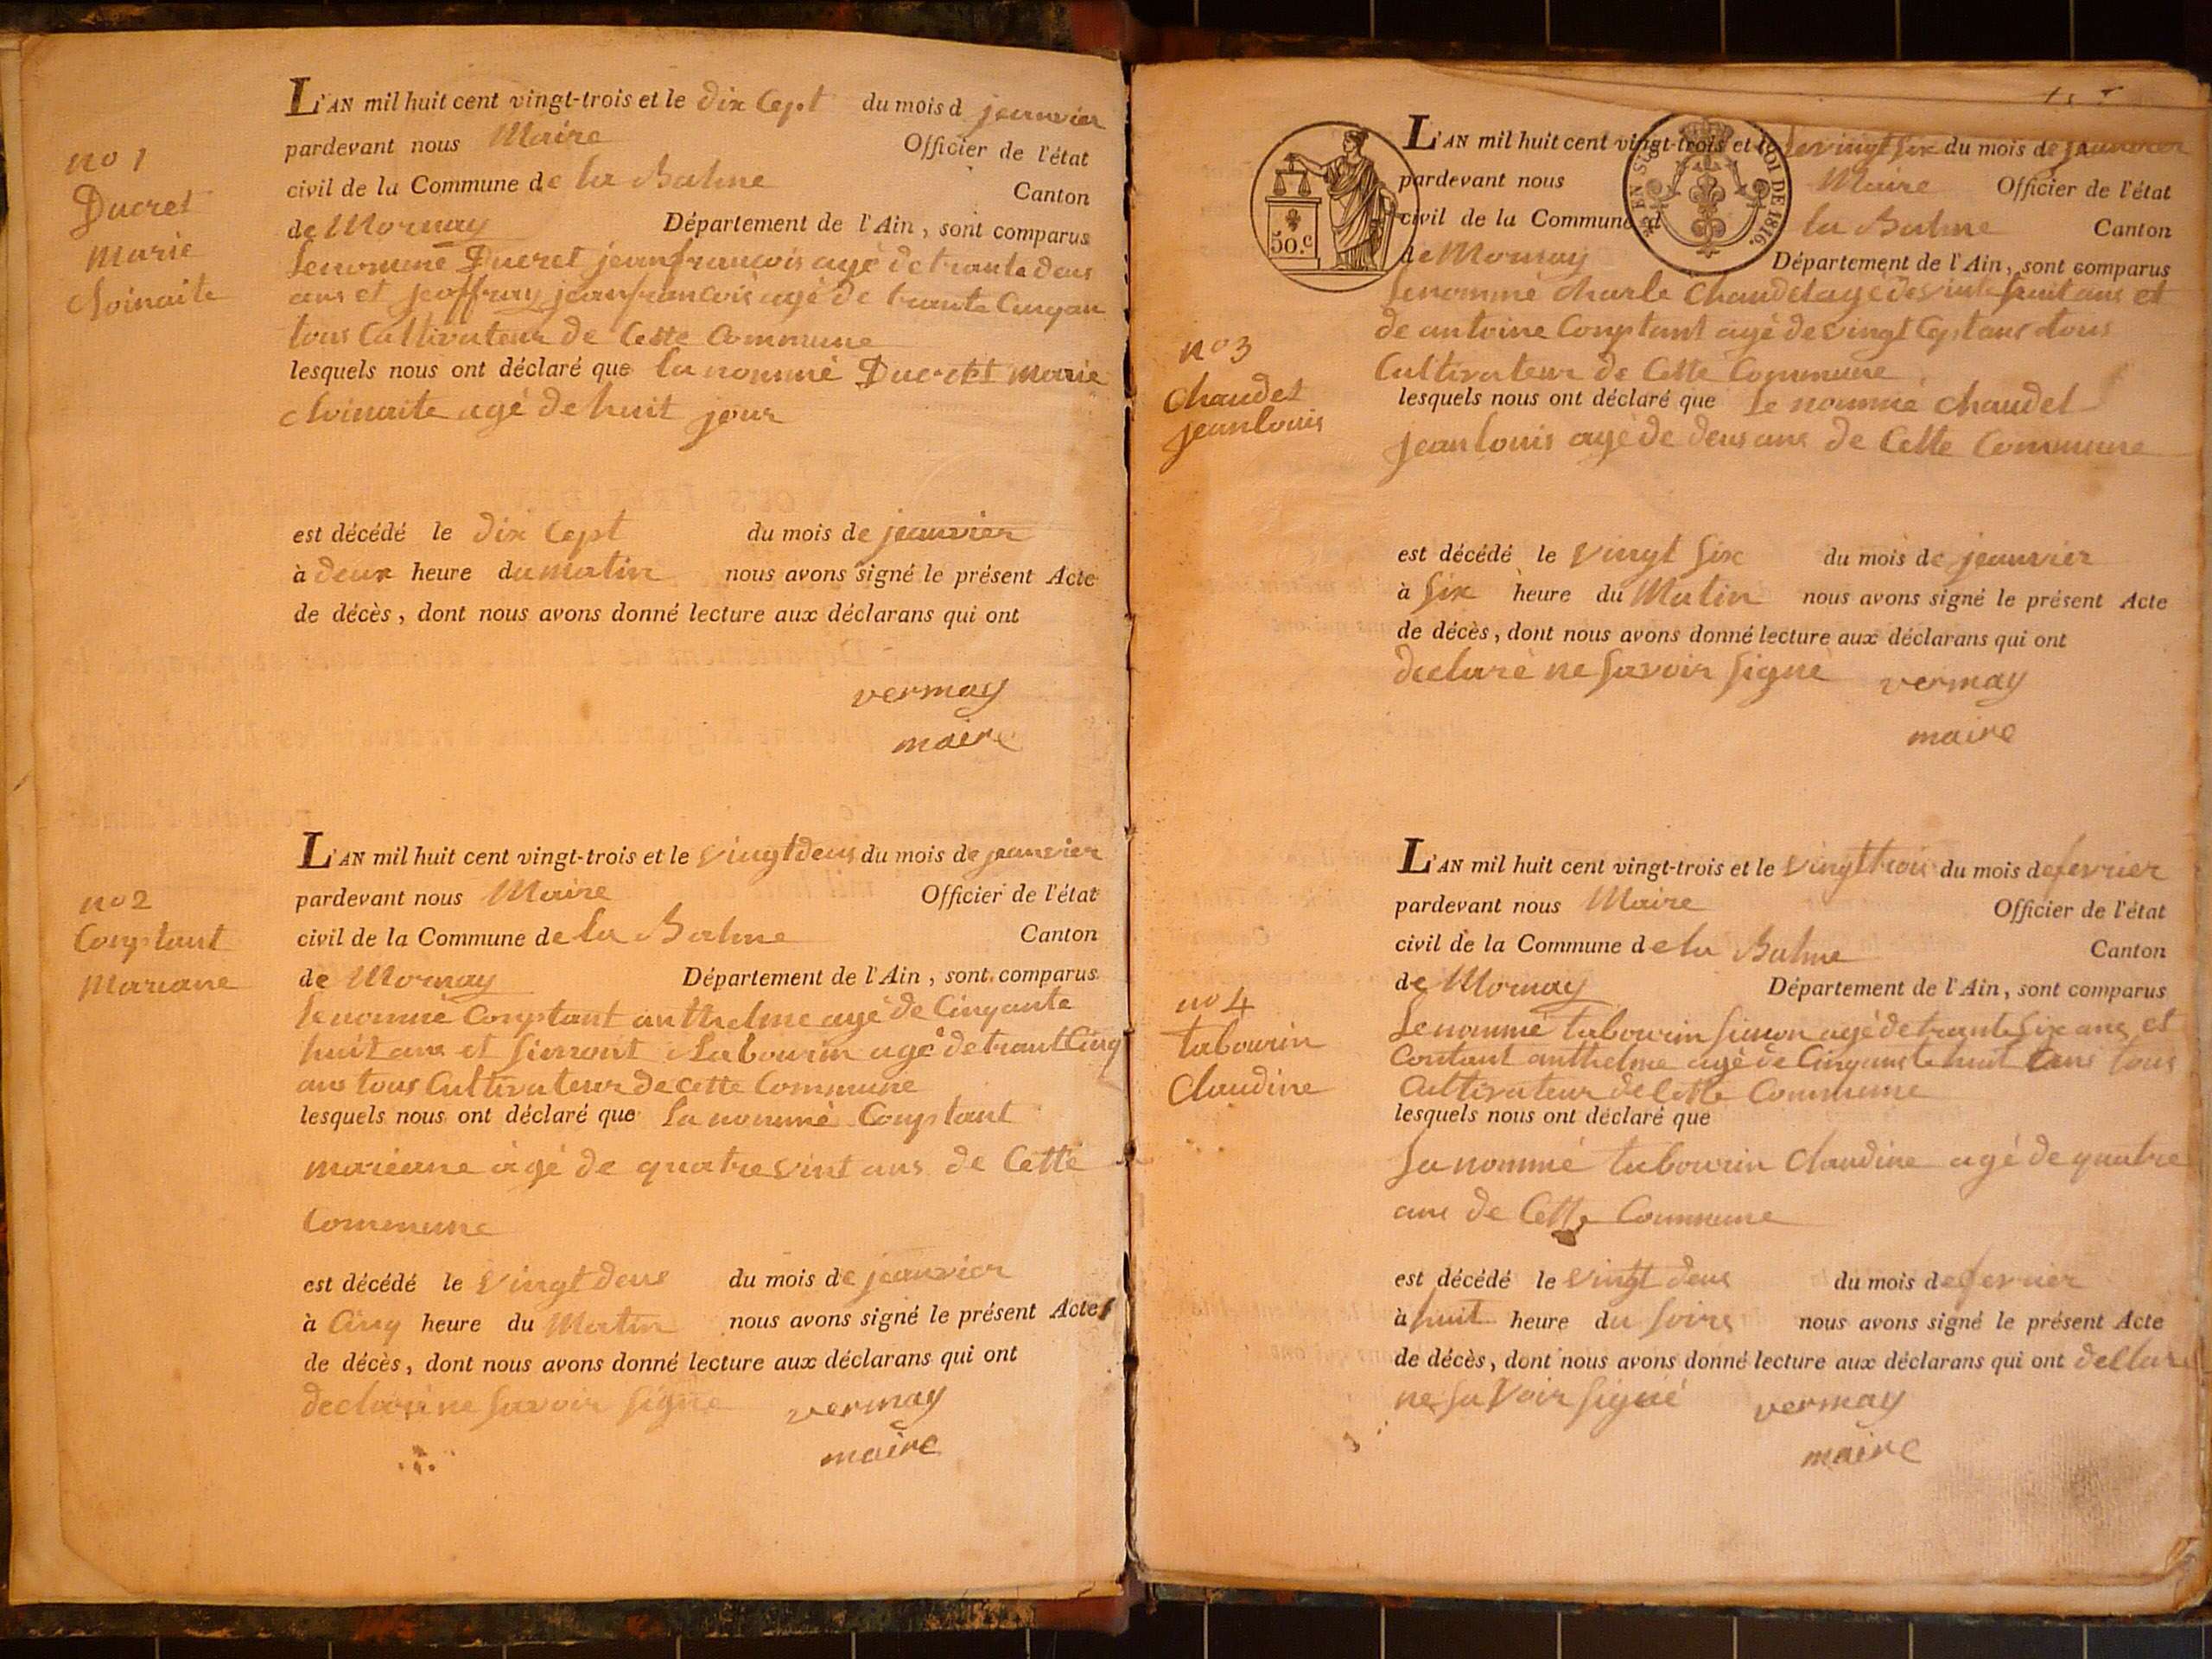 L'AN mil huit cent vingt-trois et le dix Cept du mois d jeanvier
pardevant nous Maire Officier de l'état
civil de la Commune de la Balme Canton
de Mornay Département de l'Ain, sont comparus
no 1
Ducret
Marie
Le nommé Ducret jean francois agé de trante deus
ans et jeoffray jean francois agé de trante Cinq an
tous Cultivateur de Cette Commune
lesquels nous ont déclaré que la nommé Ducret Marie
agé de huit jour
est décédé le dix Cept du mois de jeanvier
à deux heure du matin nous avons signé le présent Acte
de décès, dont nous avons donné lecture aux déclarans qui ont
vermay
maire
L'AN mil huit cent vingt-trois et le vingt deus du mois de jeanvier
pardevant nous Maire Officier de l'état
civil de la Commune de la Balme Canton
de Mornay Département de l'Ain, sont comparus
no 2
Conptant
Mariane
le nommé Conptant anthelme agé de Cinqante
huit ans et Simont tabourin agé de trant Cinq
ans tous Cultivateur de cette Commune
lesquels nous ont déclaré que la nommé Conptant
marieane agé de quatre vint ans de Cette
Commune
est décédé le vingt deus du mois de jeanvier
à Cinq heure du Matin nous avons signé le présent Acte
de décès, dont nous avons donné lecture aux déclarans qui ont
declaré ne savoir signé vermay
maire
50.c
EN SU LOI DE 1816.
L'AN mil huit cent vingt-trois et le vingt six du mois de jeanvier
pardevant nous Maire Officier de l'état
civil de la Commune d la Balme Canton
de Mornay Département de l'Ain, sont comparus
no 3
Chaudet
jean louis
le nommé Charle Chaudet agé de vint huit ans et
de antoine Conptant agé de vingt Cept ans tous
Cultivateur de Cette Commune
lesquels nous ont déclaré que le nommé Chaudet
jean louis agé de deus ans de Cette Commune
est décédé le vingt six du mois de jeanvier
à six heure du Matin nous avons signé le présent Acte
de décès, dont nous avons donné lecture aux déclarans qui ont
declaré ne savoir signé vermay
maire
L'AN mil huit cent vingt-trois et le vingt trois du mois de fevrier
pardevant nous Maire Officier de l'état
civil de la Commune de la Balme Canton
de Mornay Département de l'Ain, sont comparus
no 4
tabourin
Claudine
Le nommé tabourin Simon agé de trante six ans et
Contant anthelme agé de Cinquante huit ans tous
Cultivateur de Cette Commune
lesquels nous ont déclaré que
la nommé tabourin Claudine agé de quatre
ans de Cette Commune
est décédé le vingt deus du mois de fevrier
à huit heure du soire nous avons signé le présent Acte
de décès, dont nous avons donné lecture aux déclarans qui ont dellare
ne savoir signé vermay
maire